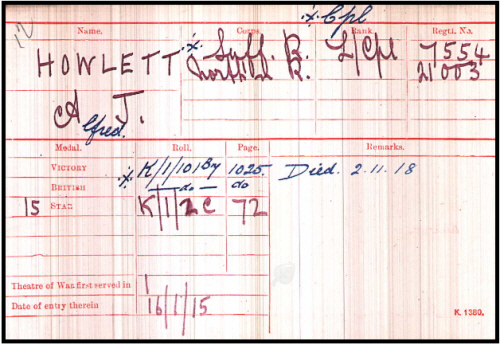 12
※ Cpl
Name. Corps. Rank. Regtl. No.
HOWLETT ※ Suff. R. L/Cpl 7554
North'd. R. 21003
A J.
lfred.
Medal. Roll. Page. Remarks.
VICTORY ※ K/1/101B7 1025. Died. 2.11.18
BRITISH — do — do
15 STAR K/1/2C 72
Theatre of War first served in 1
Date of entry therein 16/1/15
K. 1380.